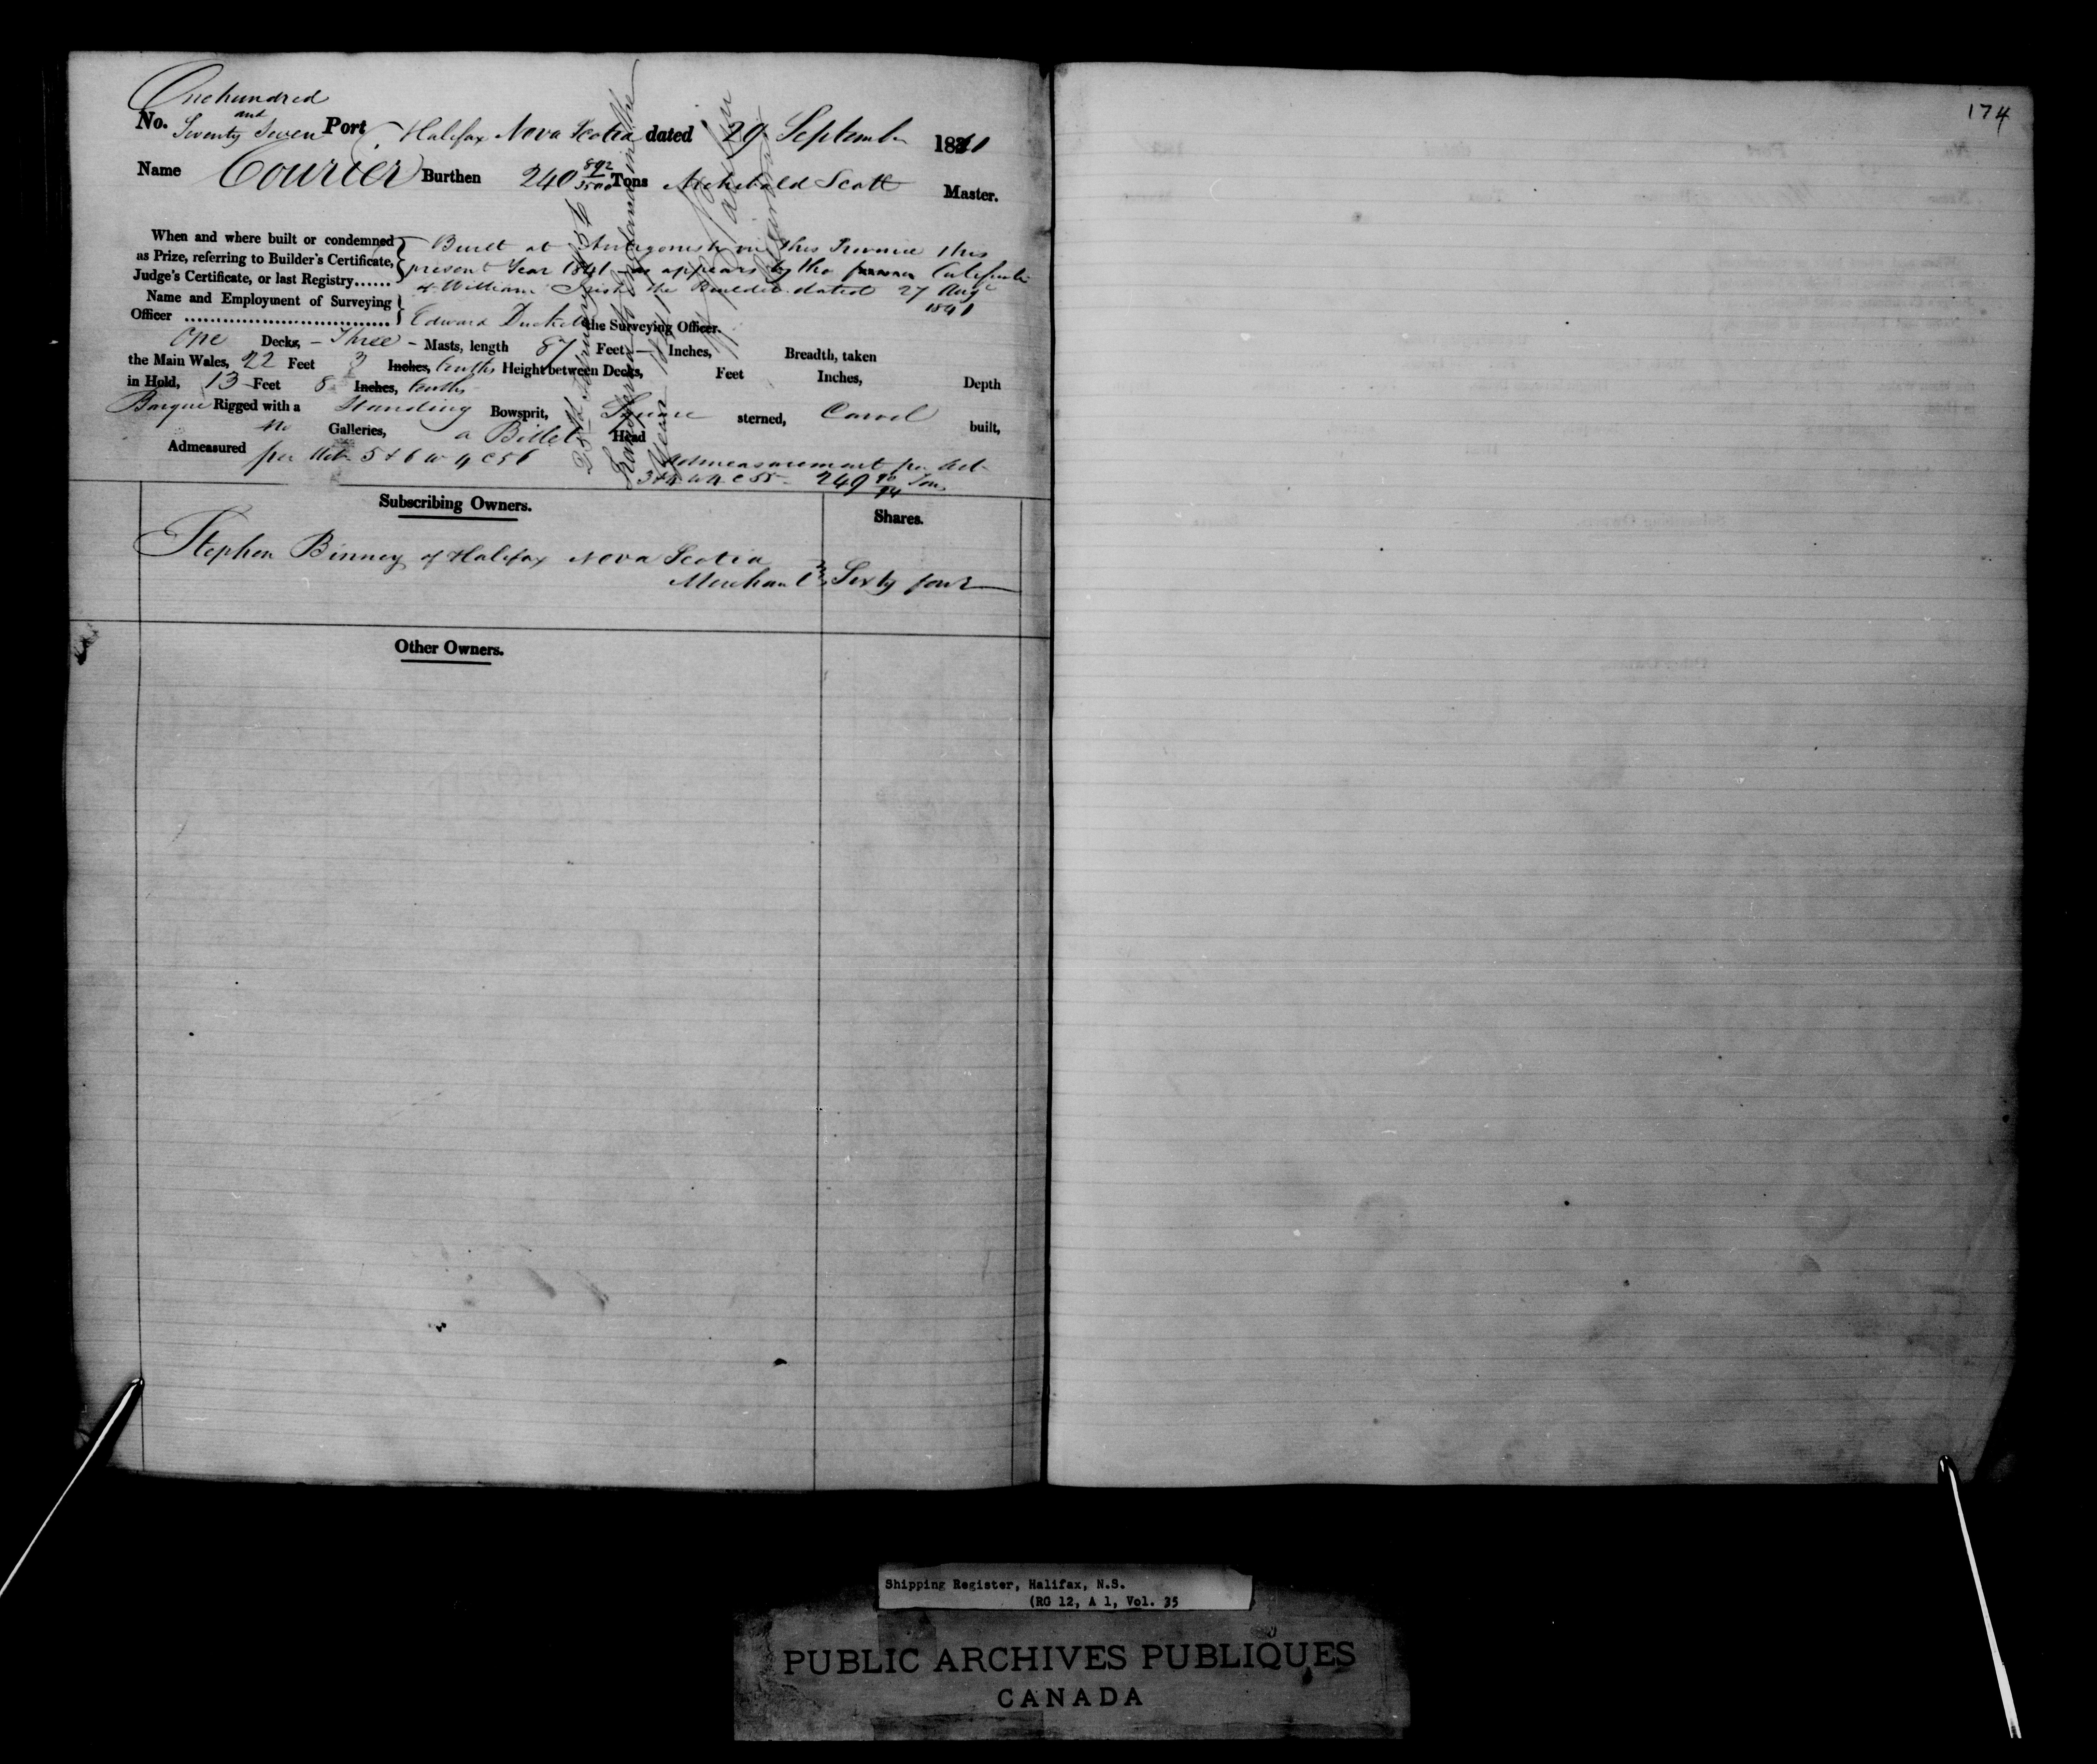 One hundred
and
No. Seventy Seven Port Halifax Nova Scotia dated 29 September 1841
Name Courier Burthen 240 892/3500 Tons Archibald Scott Master.
When and where built or condemned Built at Antigonish in this Province this
as Prize, referring to Builder's Certificate, present Year 1841 as appears by the Certificate
Judge's Certificate, or last Registry...... of William Irish the Builder dated 27 Augt
Name and Employment of Surveying 1841
Officer ................................. Edward Duckett the Surveying Officer.
One Decks, – Three – Masts, length 87 Feet – Inches, Breadth, taken
the Main Wales, 22 Feet 3 Inches, tenths Height between Decks, Feet Inches,
in Hold, 13 Feet 8 Inches, tenths Depth
Barque Rigged with a Standing Bowsprit, Square sterned, Carvel built,
no Galleries, a Billet Head
Admeasured per Act 5 & 6 W 4 C 56 Admeasurement per Act
3 & 4 W 4 C 55 – 249 Tons
Subscribing Owners. Shares.
Stephen Binney of Halifax Nova Scotia
Merchant Sixty four
Other Owners.
174
Shipping Register, Halifax, N.S.
(RG 12, A 1, Vol. 35
PUBLIC ARCHIVES PUBLIQUES
CANADA